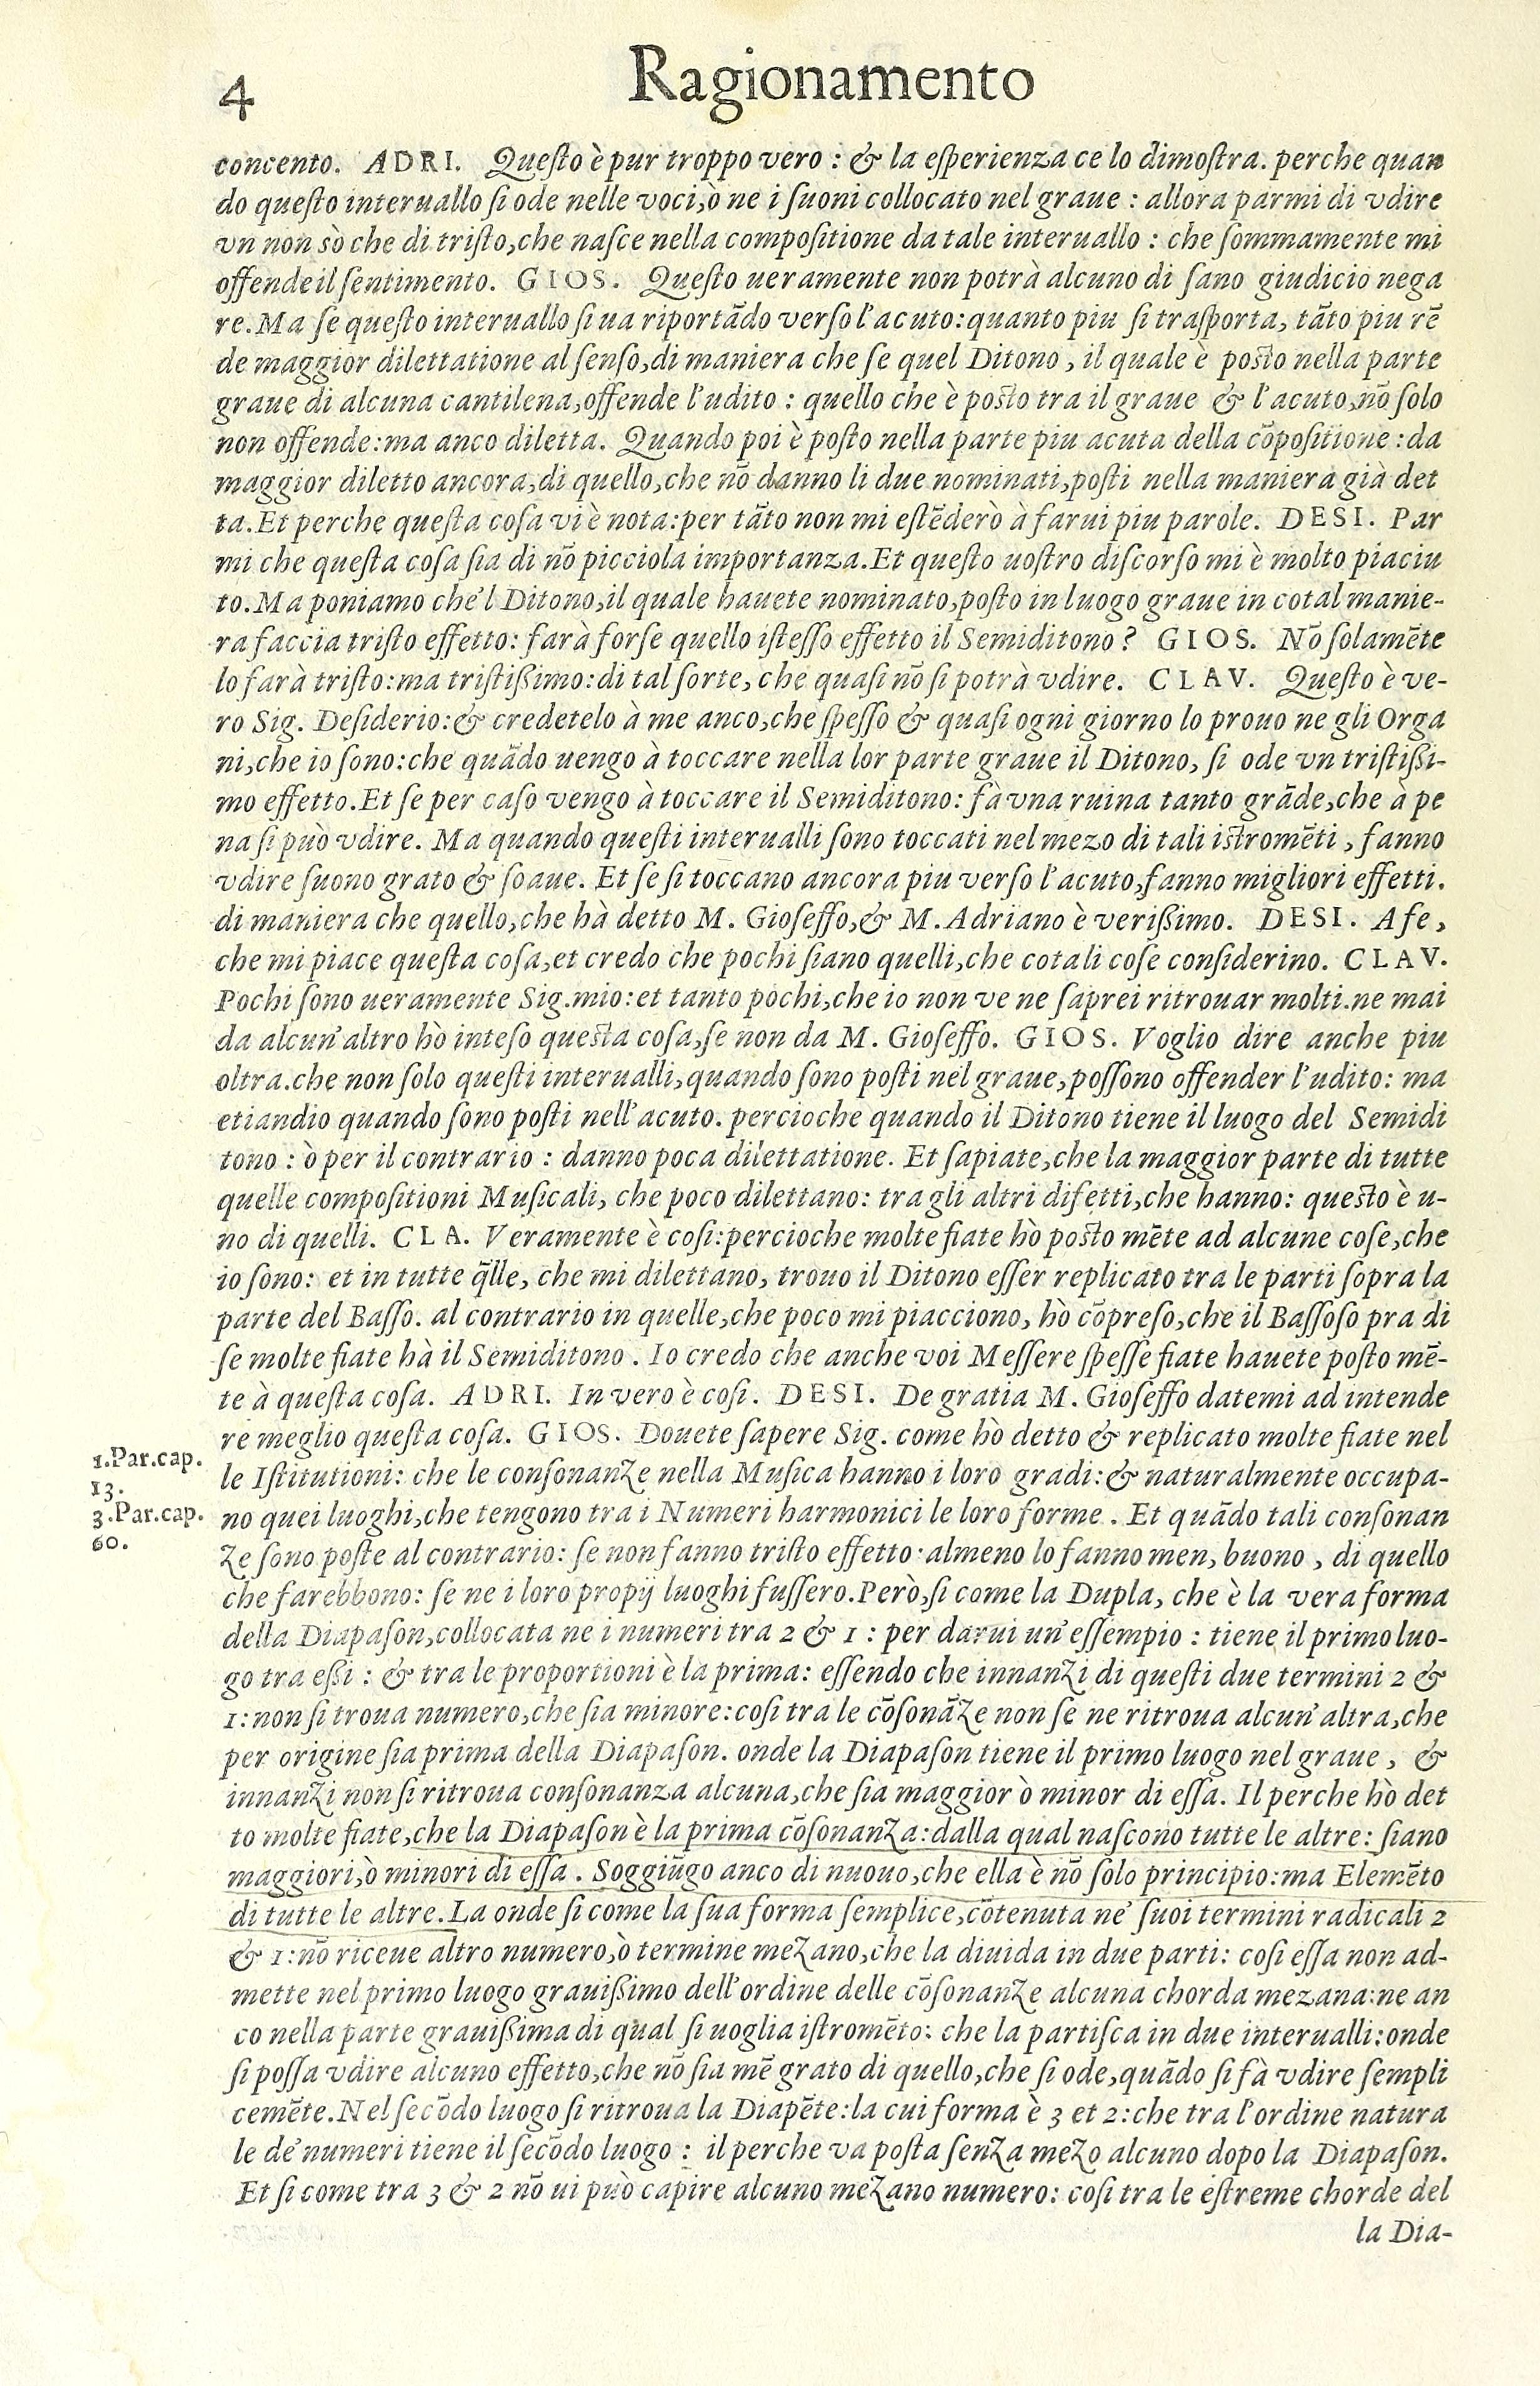 4
Ragionamento
concento. ADRI. Queſto è pur troppo vero : & la eſperienza ce lo dimoſtra. perche quan
do queſto interuallo ſi ode nelle voci,ò ne i ſuoni collocato nel graue : allora parmi di vdire
vn non sò che di triſto,che naſce nella compoſitione da tale interuallo : che ſommamente mi
offende il ſentimento. GIOS. Queſto ueramente non potrà alcuno di ſano giudicio nega
re.Ma ſe queſto interuallo ſi ua riportãdo verſo l'acuto:quanto piu ſi traſporta, tãto piu rẽ
de maggior dilettatione al ſenſo,di maniera che ſe quel Ditono, il quale è poſto nella parte
graue di alcuna cantilena,offende l'udito : quello che è poſto tra il graue & l'acuto,nõ ſolo
non offende:ma anco diletta. Quando poi è poſto nella parte piu acuta della cõpoſitione:da
maggior diletto ancora,di quello,che nõ danno li due nominati,poſti nella maniera già det
ta.Et perche queſta coſa vi è nota:per tãto non mi eſtẽderò à farui piu parole. DESI. Par
mi che queſta coſa ſia di nõ picciola importanza.Et queſto uoſtro diſcorſo mi è molto piaciu
to.Ma poniamo che'l Ditono,il quale hauete nominato,poſto in luogo graue in cotal manie-
ra faccia triſto effetto: farà forſe quello iſteſſo effetto il Semiditono? GIOS. Nõ ſolamẽte
lo farà triſto:ma triſtißimo:di tal ſorte, che quaſi nõ ſi potrà vdire. CLAV. Queſto è ve-
ro Sig. Deſiderio:& credetelo à me anco,che ſpeſſo & quaſi ogni giorno lo prouo ne gli Orga
ni,che io ſono:che quãdo uengo à toccare nella lor parte graue il Ditono, ſi ode vn triſtißi-
mo effetto.Et ſe per caſo vengo à toccare il Semiditono: fà vna ruina tanto grãde,che à pe
na ſi può vdire. Ma quando queſti interualli ſono toccati nel mezo di tali iſtromẽti, fanno
vdire ſuono grato & ſoaue. Et ſe ſi toccano ancora piu verſo l'acuto,fanno migliori effetti.
di maniera che quello,che hà detto M. Gioſeffo,& M. Adriano è verißimo. DESI. Afe,
che mi piace queſta coſa,et credo che pochi ſiano quelli,che cotali coſe conſiderino. CLAV.
Pochi ſono ueramente Sig.mio:et tanto pochi,che io non ve ne ſaprei ritrouar molti.ne mai
da alcun'altro hò inteſo queſta coſa,ſe non da M. Gioſeffo. GIOS. Voglio dire anche piu
oltra.che non ſolo queſti interualli,quando ſono poſti nel graue,poſſono offender l'udito: ma
etiandio quando ſono poſti nell'acuto. percioche quando il Ditono tiene il luogo del Semidi
tono : ò per il contrario : danno poca dilettatione. Et ſapiate,che la maggior parte di tutte
quelle compoſitioni Muſicali, che poco dilettano: tra gli altri difetti,che hanno: queſto è u-
no di quelli. CLA. Veramente è coſi:percioche molte fiate hò poſto mẽte ad alcune coſe,che
io ſono: et in tutte q̃lle, che mi dilettano, trouo il Ditono eſſer replicato tra le parti ſopra la
parte del Baſſo. al contrario in quelle,che poco mi piacciono, hò cõpreſo,che il Baſſoſo pra di
ſe molte fiate hà il Semiditono. Io credo che anche voi Meſſere ſpeſſe fiate hauete poſto mẽ-
te à queſta coſa. ADRI. In vero è coſi. DESI. De gratia M. Gioſeffo datemi ad intende
re meglio queſta coſa. GIOS. Douete ſapere Sig. come hò detto & replicato molte fiate nel
1.Par.cap.
13.
3.Par.cap.
60.
le Iſtitutioni: che le conſonanze nella Muſica hanno i loro gradi:& naturalmente occupa-
no quei luoghi,che tengono tra i Numeri harmonici le loro forme. Et quãdo tali conſonan
ze ſono poſte al contrario: ſe non fanno triſto effetto· almeno lo fanno men, buono, di quello
che farebbono: ſe ne i loro propij luoghi fuſſero.Però,ſi come la Dupla, che è la vera forma
della Diapaſon,collocata ne i numeri tra 2 & 1 : per darui un'eſſempio : tiene il primo luo-
go tra eßi : & tra le proportioni è la prima: eſſendo che innanzi di queſti due termini 2 &
1:non ſi troua numero,che ſia minore:coſi tra le cõſonãze non ſe ne ritroua alcun'altra,che
per origine ſia prima della Diapaſon. onde la Diapaſon tiene il primo luogo nel graue, &
innanzi non ſi ritroua conſonanza alcuna,che ſia maggior ò minor di eſſa. Il perche hò det
to molte fiate,che la Diapaſon è la prima cõſonanza:dalla qual naſcono tutte le altre: ſiano
maggiori,ò minori di eſſa. Soggiũgo anco di nuouo,che ella è nõ ſolo principio:ma Elemẽto
di tutte le altre.La onde ſi come la ſua forma ſemplice,cõtenuta ne' ſuoi termini radicali 2
& 1:nõ riceue altro numero,ò termine mezano,che la diuida in due parti: coſi eſſa non ad-
mette nel primo luogo grauißimo dell'ordine delle cõſonanze alcuna chorda mezana:ne an
co nella parte grauißima di qual ſi uoglia iſtromẽto: che la partiſca in due interualli:onde
ſi poſſa vdire alcuno effetto,che nõ ſia mẽ grato di quello,che ſi ode,quãdo ſi fà vdire ſempli
cemẽte.Nel ſecõdo luogo ſi ritroua la Diapẽte:la cui forma è 3 et 2:che tra l'ordine natura
le de' numeri tiene il ſecõdo luogo : il perche va poſta ſenza mezo alcuno dopo la Diapaſon.
Et ſi come tra 3 & 2 nõ ui può capire alcuno mezano numero: coſi tra le eſtreme chorde del
la Dia-